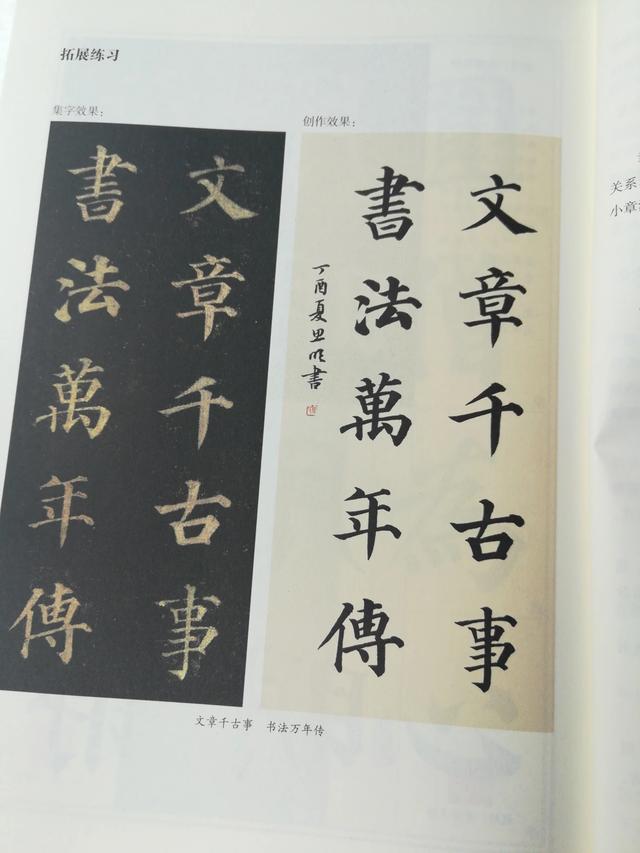 拓展练习
集字效果：
文章千古事
書法萬年傳
创作效果：
文章千古事
書法萬年傳
丁酉夏思明書
文章千古事 书法万年传
关系
小章